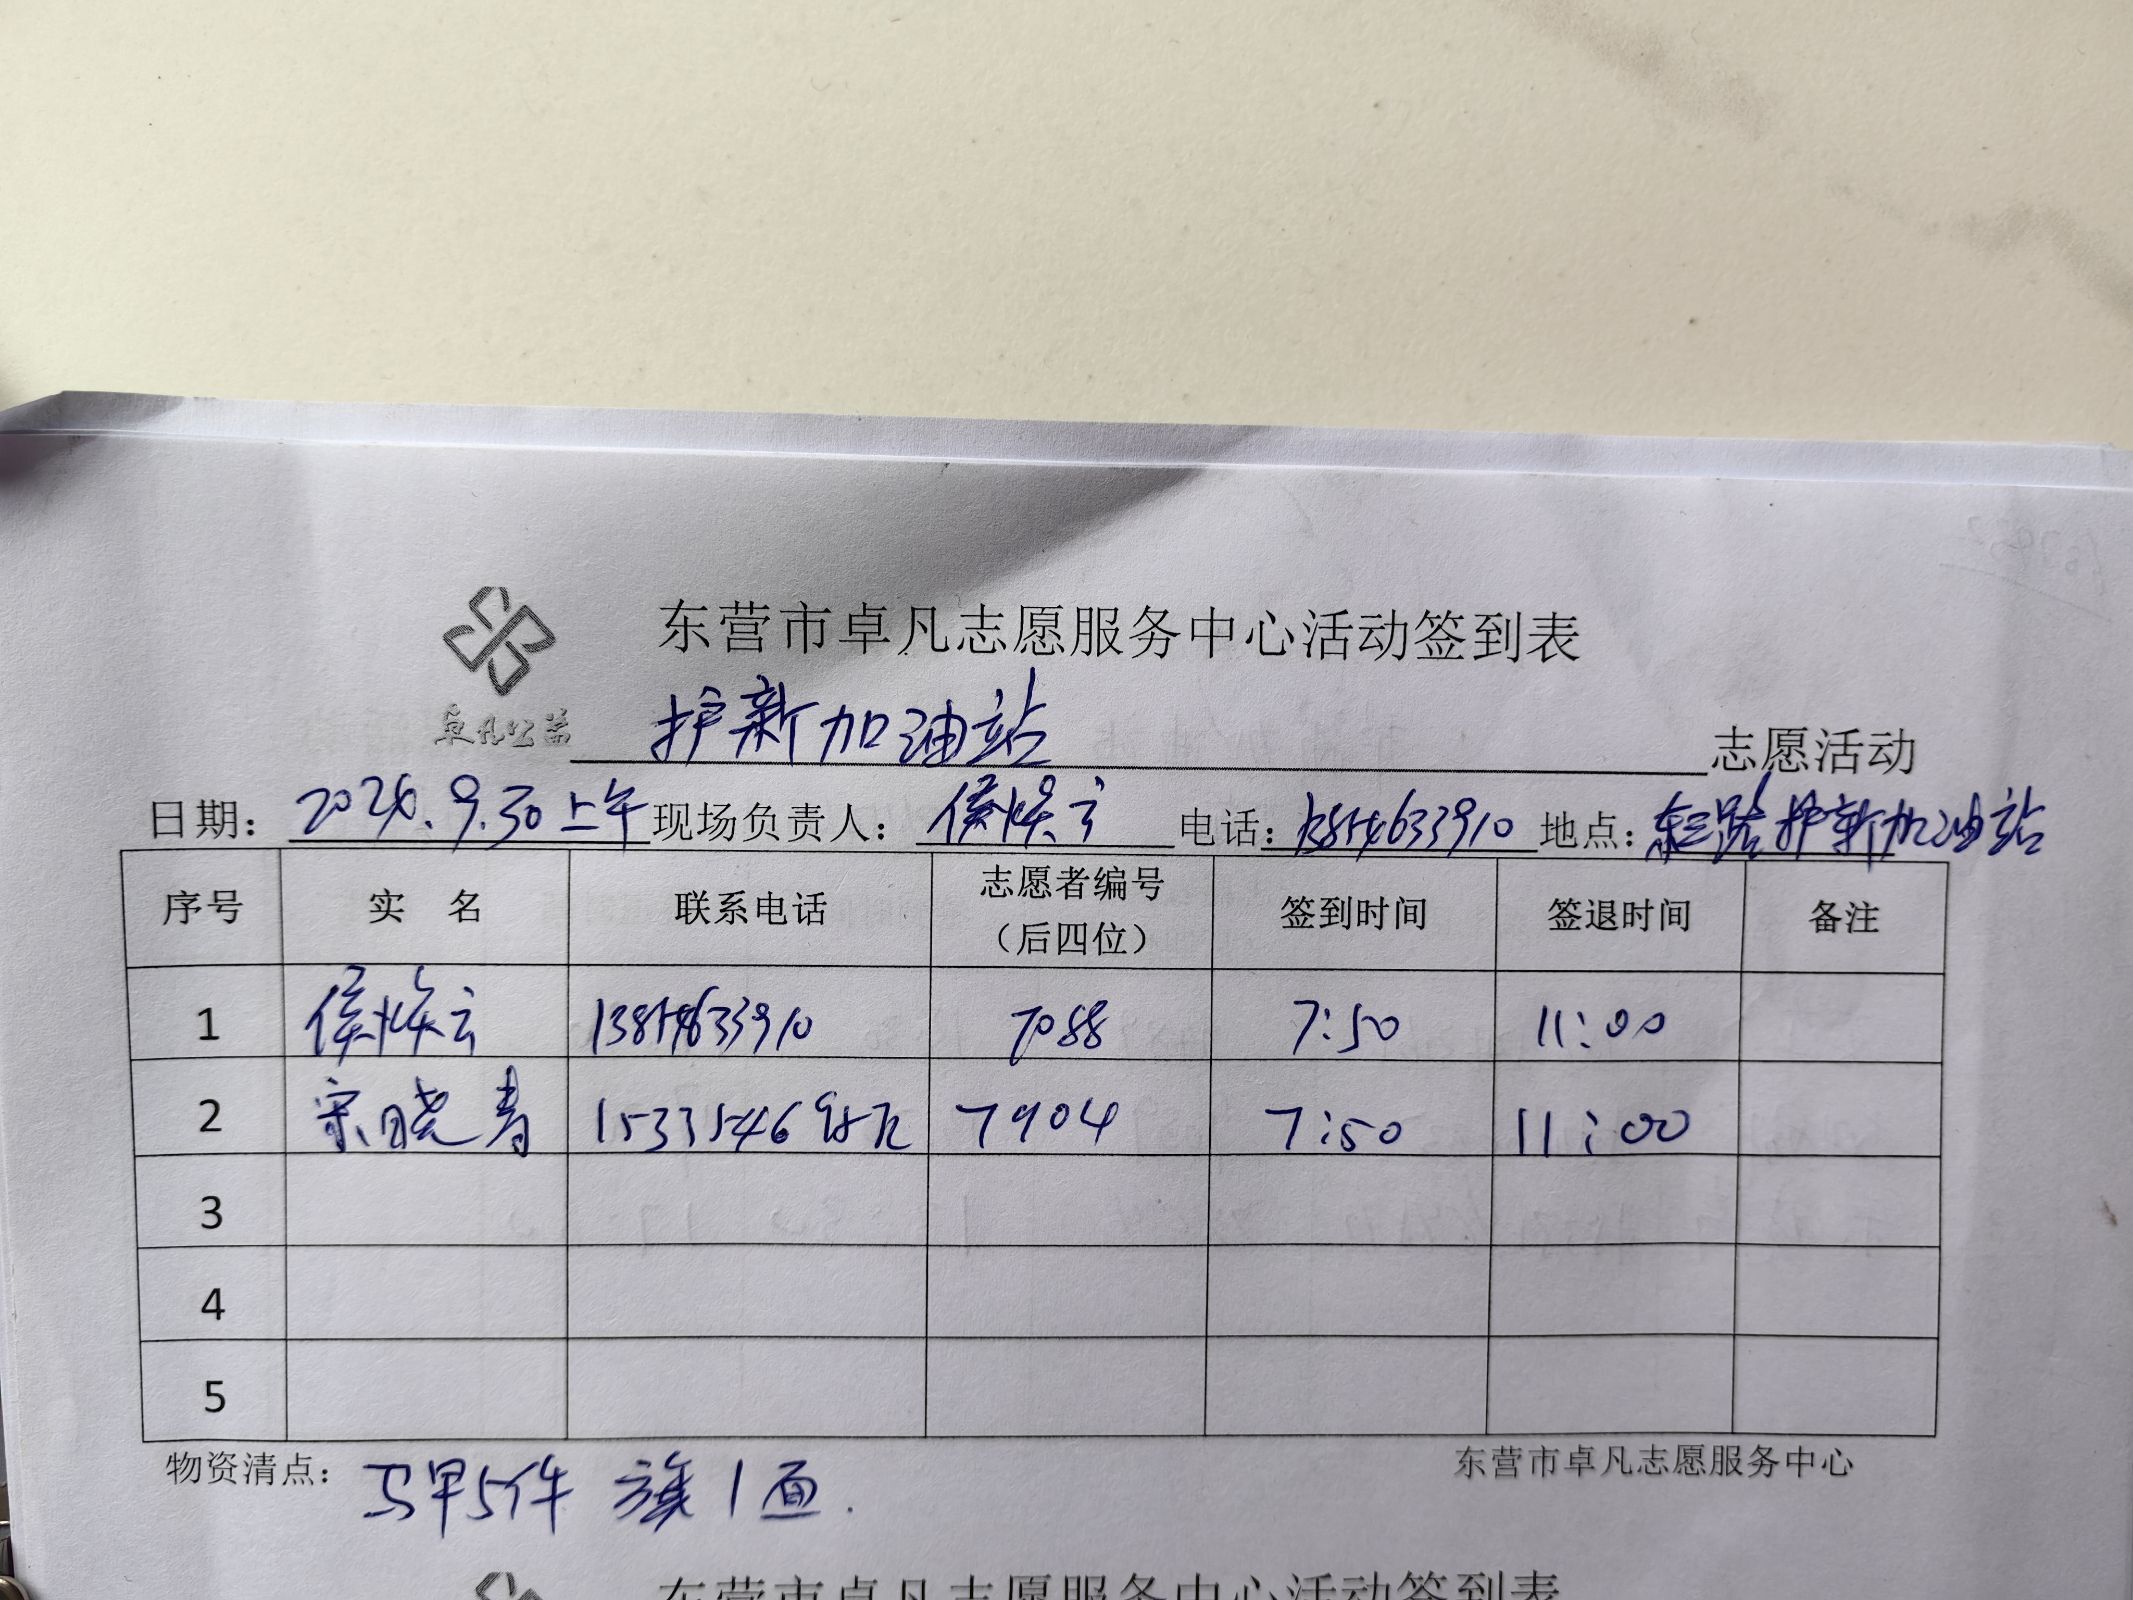 东营市卓凡志愿服务中心活动签到表
卓凡公益 护新加油站 志愿活动
日期: 2024.9.30上午 现场负责人: 侯焕云 电话: 13854633910 地点: 东三路护新加油站
序号 实 名 联系电话 志愿者编号(后四位) 签到时间 签退时间 备注
1 侯焕云 13854633910 7088 7:50 11:00
2 宋晓青 7904 7:50 11:00
3
4
5
物资清点: 马甲5件 旗1面. 东营市卓凡志愿服务中心
东营市卓凡志愿服务中心活动签到表